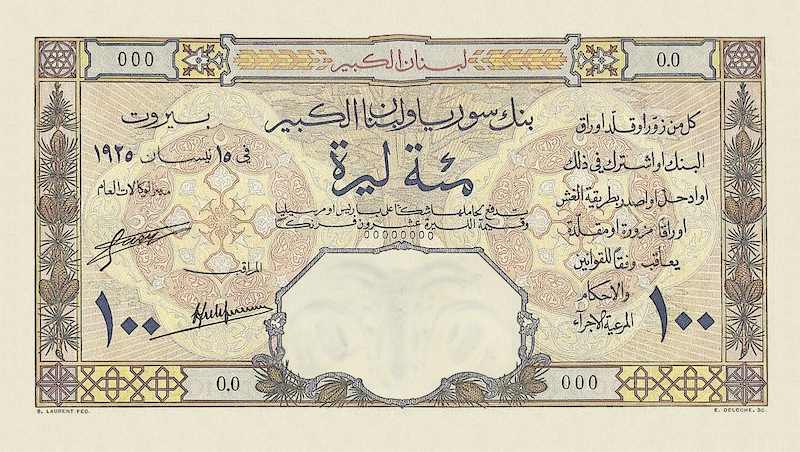 000
لبنان الكبير
0.0
بنك سوريا ولبنان الكبير
مئة ليرة
بيروت
في ١٥ نيسان ١٩٢٥
مدير الوكالات العام
المراقب
تدفع لحاملها شكًا على باريس او مرسيليا
وقيمة الليرة عشرون فرنك
00000000
كل من زوّر او قلّد اوراق
البنك او اشترك في ذلك
او ادخل او اصدر بطريقة الغش
اوراقًا مزورة او مقلّدة
يعاقب وفقًا للقوانين
والاحكام
المرعية الاجراء
١٠٠
١٠٠
0.0
000
S. LAURENT FEC.
E. DELOCHE, SC.